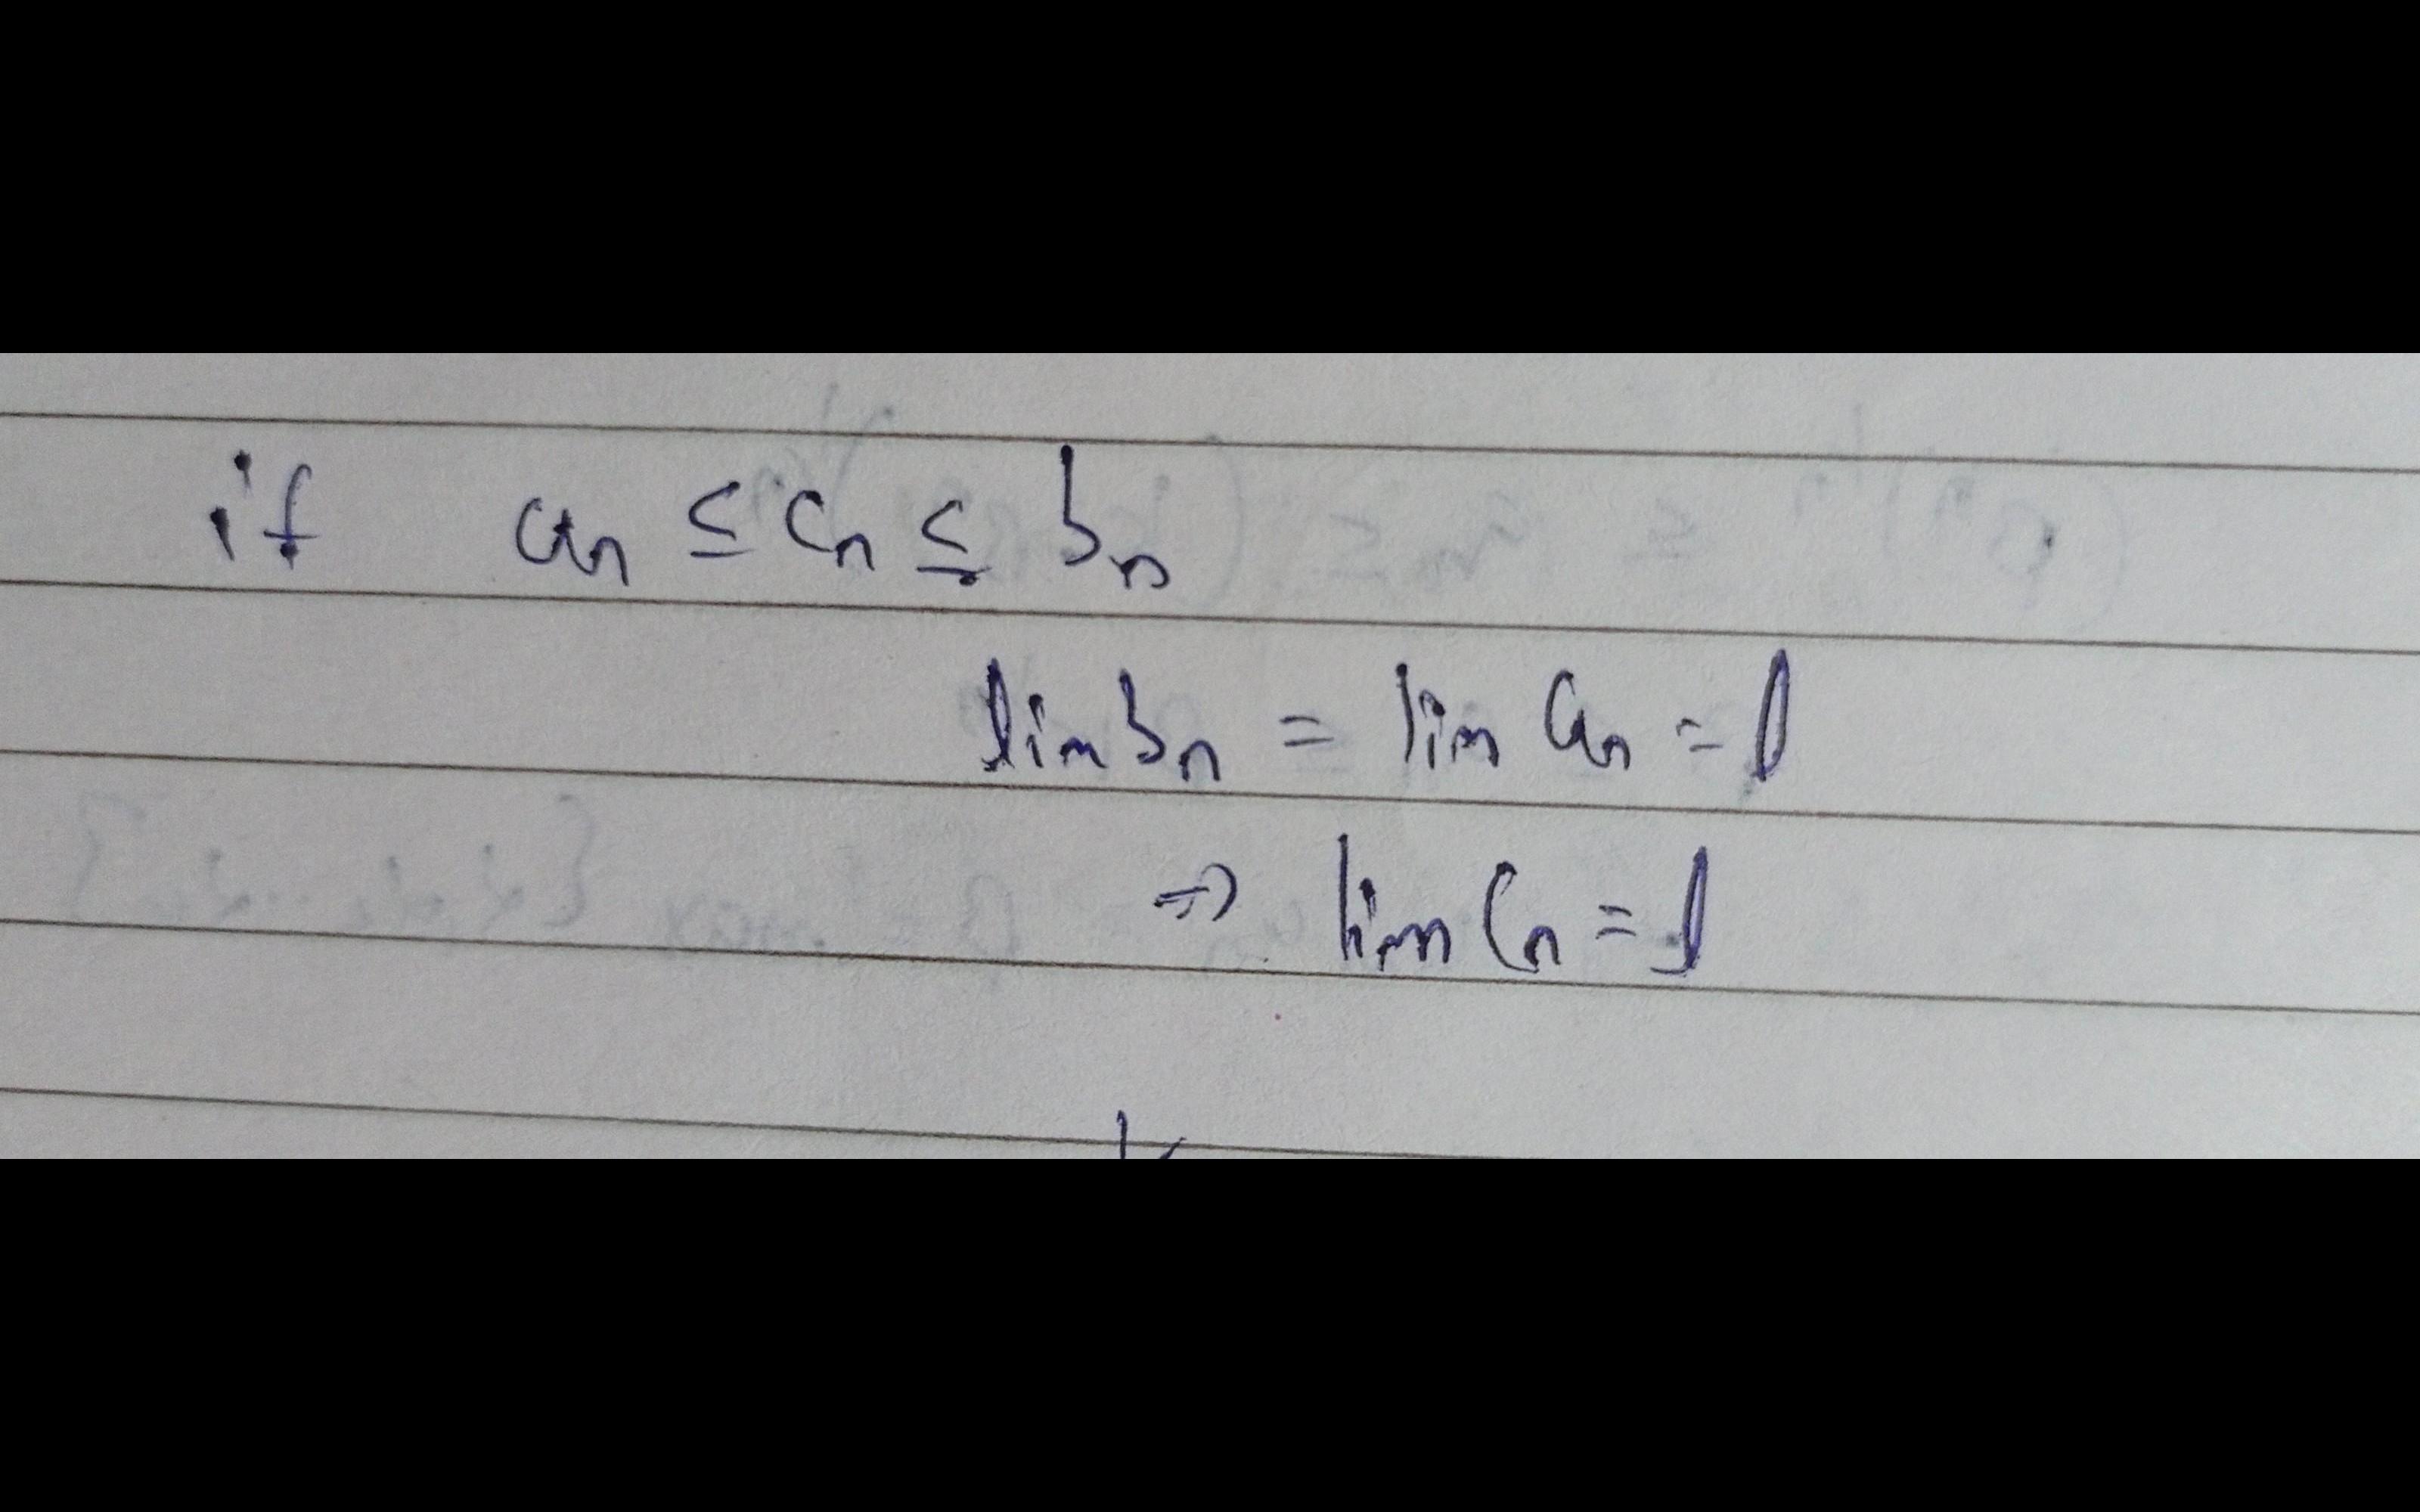 if aₙ ≤ cₙ ≤ bₙ
lim bₙ = lim aₙ = l
⇒ lim cₙ = l